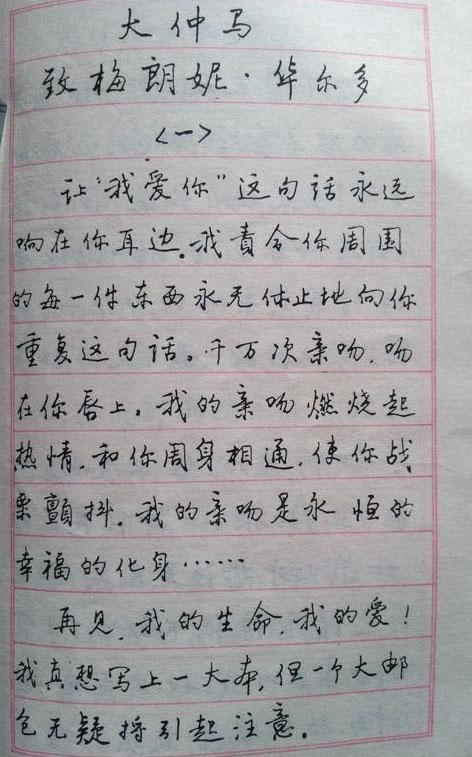 大仲马
致梅朗妮·华尔多
<一>
让“我爱你”这句话永远
响在你耳边。我责令你周围
的每一件东西永无休止地向你
重复这句话。千万次亲吻,吻
在你唇上。我的亲吻燃烧起
热情,和你周身相通,使你战
栗颤抖。我的亲吻是永恒的
幸福的化身……
再见,我的生命,我的爱!
我真想写上一大本,但一个大邮
包无疑将引起注意。